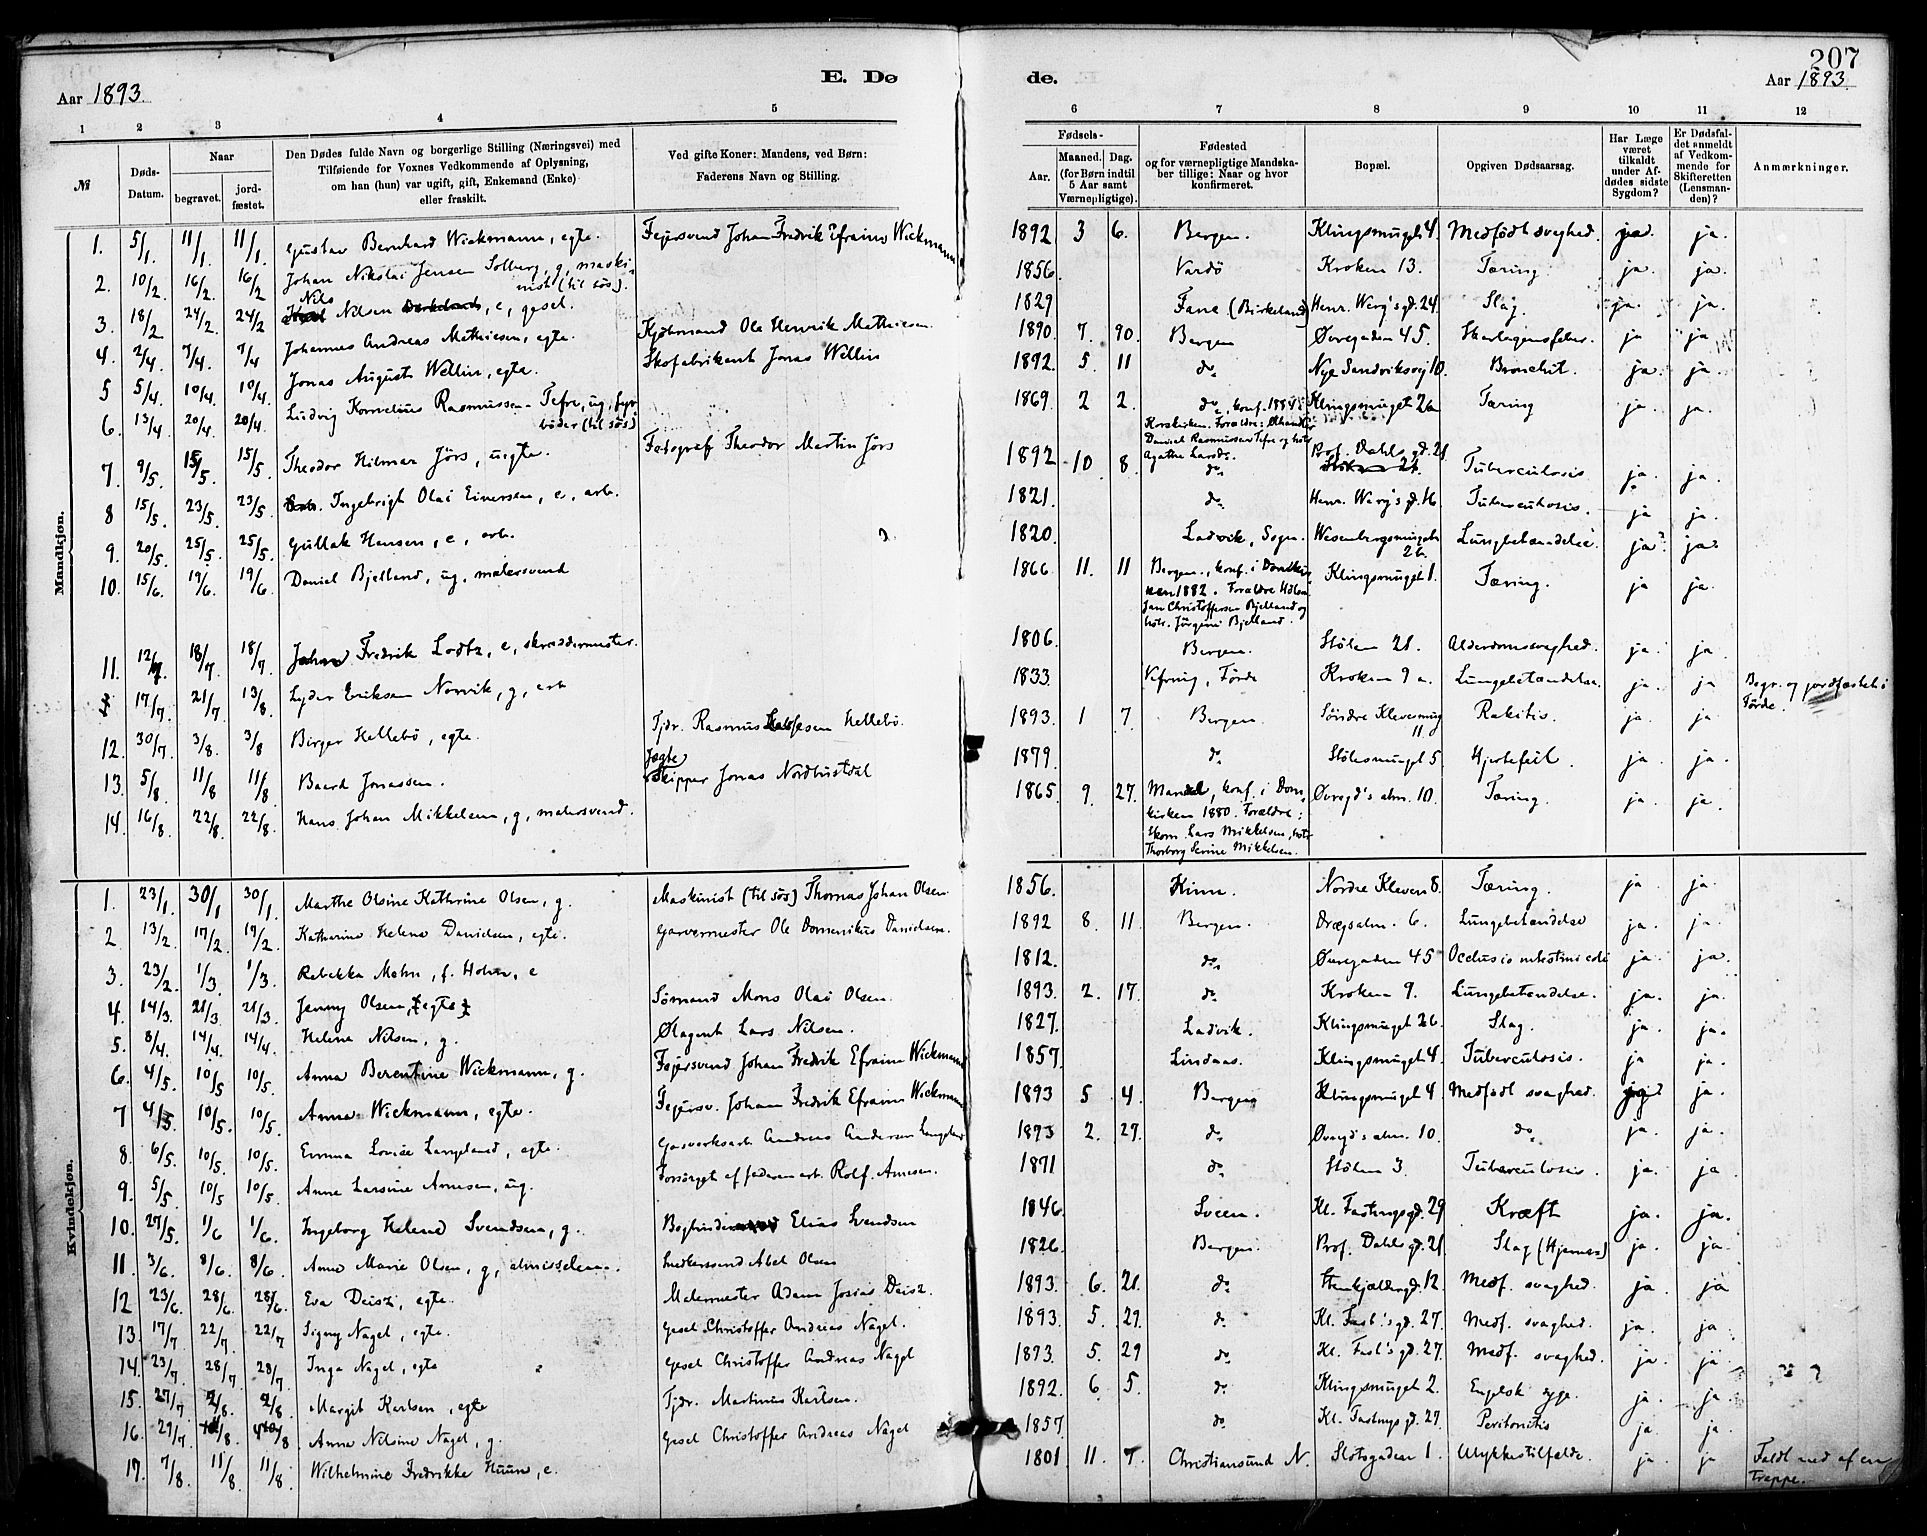 207
E. Dø de.
Aar 1893. Aar 1893.
1 2 3 4 5 6 7 8 9 10 11 12
№
Døds-Datum.
Naar
begravet. jord-fæstet.
Den Dødes fulde Navn og borgerlige Stilling (Næringsvei) med
Tilføiende for Voxnes Vedkommende af Oplysning,
om han (hun) var ugift, gift, Enkemand (Enke)
eller fraskilt.
Ved gifte Koner: Mandens, ved Børn:
Faderens Navn og Stilling.
Fødsels-
Aar. Maaned. Dag.
(for Børn indtil
5 Aar samt
Værnepligtige).
Fødested
og for værnepligtige Mandska-
ber tillige: Naar og hvor
konfirmeret.
Bopæl.
Opgiven Dødsaarsag.
Har Læge
været
tilkaldt
under Af-
dødes sidste
Sygdom?
Er Dødsfal-
det anmeldt
af Vedkom-
mende for
Skifteretten
(Lensman-
den)?
Anmærkninger.
Mandkjøn.
1. 5/1. 11/1. 11/1. Gustav Bernhard Wickmann, egte. Feiersvend Johan Fredrik Efraim Wickmann 1892 3 6. Bergen. Klingsmuget 4. Medfødt svaghed. ja. ja.
2. 10/2. 16/2. 16/2 Johan Nikolai Jensen Solberg, g, maski-
nist (til søs). 1856. Vardø Kroken 13. Tæring. ja. ja.
3. 18/2 24/2. 24/2 Nils Nilsen, e, gesel. 1829 Fane (Birkeland) Henr. Werg's gd. 24. Slag. ja. ja.
4. 2/4. 7/4. 7/4 Johannes Andreas Mathiesen, egte. Kjøbmand Ole Henrik Mathiesen. 1890. 7. 90. Bergen Øvregaden 45. Skarlagensfeber. ja ja
5 5/4. 10/4. 10/4. Jonas August Wellin, egte. Skofabrikant Jonas Wellin 1892. 5 11 do. Nye Sandviksvei 10. Bronchit. ja. ja.
6. 13/4. 20/4. 20/4. Ludvig Kornelius Rasmussen Tefre, ug, fyr-
bøder (til søs) 1869 2 2. do, konf. 1884 i
Korskirken. Forældre:
Daniel Rasmussen Tefre og
Agathe Larsd. Klingsmuget 2a Tæring ja. ja.
7. 9/5. 15/5. 15/5. Theodor Hilmar Jörs, uegte. Fotograf Theodor Martin Jörs 1892 10 8. do. Prof. Dahls gd. 21 Tuberculosis ja. ja.
8 15/5. 23/5. 23/5. Ingebrigt Olai Einersen, e, arb. 1821. do Henr. Werg's gd. 16 Tuberculosis. ja ja.
9. 20/5. 25/5. 25/5. Gullak Hansen, e, arb. 1820. Ladvik, Sogn. Wesenbergsmuget
26. Lungebetændelse. ja. ja.
10. 15/6. 19/6. 19/6 Daniel Bjelland, ug, malersvend 1866 11. 11 Bergen, konf. i Domkir-
ken 1882. Forældre
Jan Christoffersen Bjelland og
Jørgine Bjelland. Klingsmuget 1. Tæring. ja ja.
11. 12/7. 18/7. 18/7. Johan Fredrik Lodtz, e, skræddermester. 1806. Bergen. Stølen 21. Alderdomssvaghed. ja. ja
17/7. 21/7 13/8. Lyder Eriksen Norvik, g, arb 1833. Vefring, Førde Kroken 9 a. Lungebetændelse. ja. ja Begr. og jordfæstet i
Førde.
12. 30/7. 3/8. 3/8. Birger Hellebø, egte. Fjdr. Rasmus Hellebø. 1893. 1 7. Bergen. Søndre Klevesmug
11. Rakitis. ja. ja
13. 5/8. 11/8 11/8. Baard Jonassen. Jagte
skipper Jonas Nordhustdal 1879. do Stølesmuget 5 Hjertefeil. ja. ja.
14. 16/8. 22/8. 22/8 Hans Johan Mikkelsen, g, malersvend. 1865. 9. 27. Mandal, konf. i Dom-
kirken 1880. Forældre:
Skom. Lars Mikkelsen,
Thorborg Sevine Mikkelsen. Øvregd's alm. 10. Tæring. ja. ja.
Kvindekjøn.
1. 23/1. 30/1 30/1. Marthe Olsine Kathrine Olsen, g. Maskinist (til søs) Thomas Johan Olsen 1856. Kinn. Nordre Kleven 8. Tæring. ja. ja.
2 13/2. 17/2. 17/2. Katharine Helene Danielsen, egte. Garvermester Ole Domenikus Danielsen. 1892 8. 11. Bergen. Drægsalm. 6. Lungebetændelse ja. ja.
3. 23/2. 1/3. 1/3. Rebekka Mohn, f. Holm, e 1812. do. Øvregaden 45 Occlusio intestini coli ja. ja.
4. 14/3. 21/3. 21/3. Jenny Olsen, egte Sömand Mons Olai Olsen. 1893. 2. 17. do. Kroken 9. Lungebetændelse. ja. ja.
5. 8/4. 14/4. 14/4. Helene Nilsen, g. Ølagent Lars Nilsen. 1827. Ladvik. Klingsmuget 26 Slag. ja. ja.
6. 4/5. 10/5 10/5. Anna Berentine Wickmann, g. Feiersvend Johan Fredrik Efraim Wickmann 1857 Lindaas. Klingsmuget 4. Tuberculosis. ja ja.
7 4/5. 10/5. 10/5. Anna Wickmann, egte. Feiersv. Johan Fredrik Efraim Wickmann 1893 5 4. Bergen Klingsmuget 4 Medfødt svaghed. ja.
8. 6/5. 10/5. 10/5. Emma Lovise Langeland, egte. Gasverksarb Andreas Andersen Langeland 1893 2. 29. do. Øvregd's alm. 10. do. ja. ja.
9. 5/5. 10/5 10/5. Anne Larsine Arnesen, ug. Forsørget af faderen arb. Rolf Arnesen. 1871 do. Stølen 3 Tuberculosis. ja. ja
10. 27/5. 1/6 1/6. Ingeborg Helene Svendsen, g. Bogbinder Elias Svendsen 1846. Sveen. Kl. Fastings gd. 29 Kræft ja. ja.
11. 3/6. 8/6. 8/6. Anne Marie Olsen, g, almisselem. Abel Olsen 1826. Bergen. Prof. Dahls gd. 21 Slag (Hjerne) ja. ja.
12 23/6. 28/6. 28/6. Eva Deisz, egte. Malermester Adam Josias Deisz. 1893. 6. 21. do. Stenkjældergd. 12 Medf. svaghed. ja ja
13. 17/7. 22/7. 22/7 Signy Nagel, egte. Gesel Christoffer Andreas Nagel. 1893. 5. 29. do. Kl. Fast.'s gd. 27. Medf. svaghed. ja. ja
14. 23/7. 28/7 28/7. Inga Nagel, egte Gesel Christoffer Andreas Nagel 1893. 5. 29 do. Kl. Fast's gd. 27. Medf. svaghed. ja. ja
15. 27/7 2/8. 2/8. Margit Karlsen, egte Fjdr. Martinus Karlsen. 1892. 6. 5. do. Klingsmuget 2. Engelsk syge. ja. ja.
16. 29/7. Anna Nilsine Nagel, g. Gesel Christoffer Andreas Nagel 1857 do. Kl. Fastings gd. 27 Peritonitis ja. ja.
17. 7/8. 11/8 11/8. Wilhelmine Fredrikke Huun, e. 1801 11. 7. Christiansund N. Slotsgaden 1. Ulykkestilfælde. ja ja Faldt ned af en
Trappe.